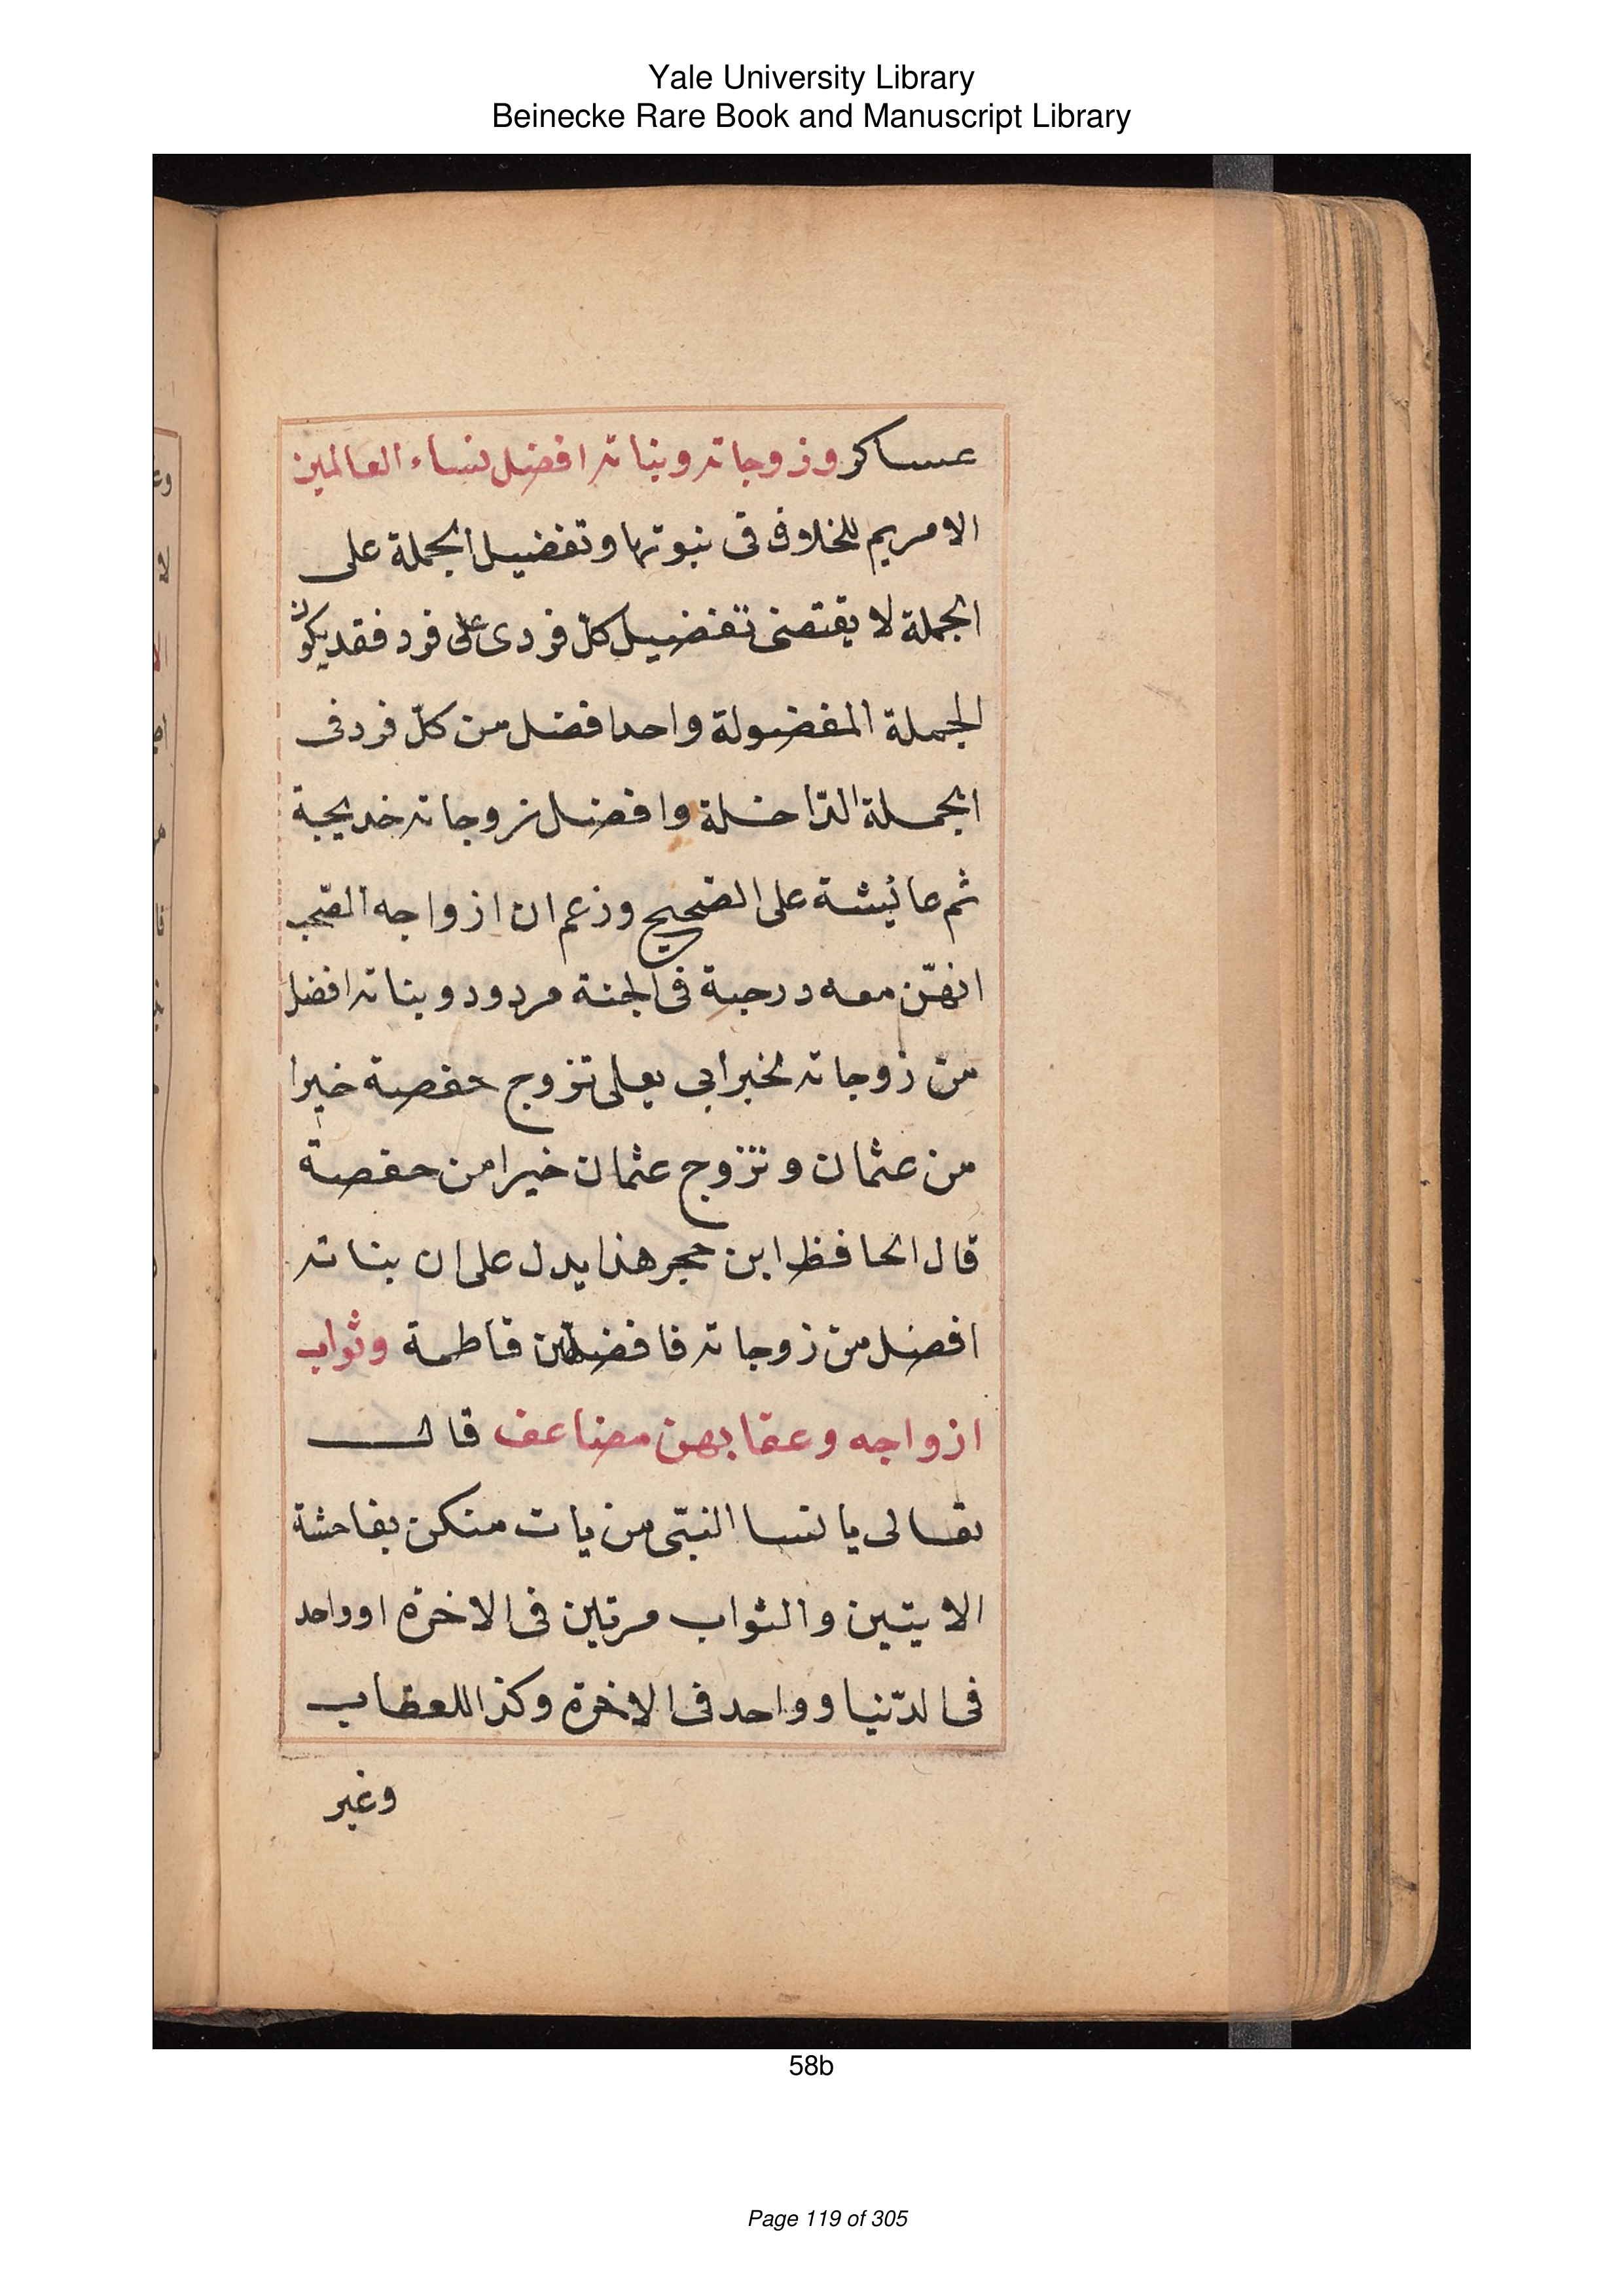 Yale University Library
Beinecke Rare Book and Manuscript Library
عساكر وزوجاته وبناته افضل نساء العالمين
الا مريم للخلاف فى نبوتها وتفضيل الجملة على
الجملة لا يقتضى تفضيل كلّ فردى على فرد فقد يكون
الجملة المفضولة واحدا فضل من كلّ فرد فى
الجملة الدّاخلة وافضل زوجاته خديجة
ثم عائيشة على الصّحيح وزعم ان ازواجه الصّحب
انهّن معه درجة فى الجنة مردود وبناته افضل
من زوجاته لخبر ابى يعلى تزوج حفصة خيرا
من عثمان وتزوج عثمان خيرا من حفصة
قال الحافظ ابن حجر هذا يدل على ان بناته
افضل من زوجاته فافضلهن فاطمة وثواب
ازواجه وعقابهن مضاعف قال
تعالى يا نسا النبّى من يات منكن بفاحشة
الايتين والثواب مرتين فى الاخرة او واحد
فى الدّنيا وواحد فى الاخرة وكذا للعقاب
وغير
58b
Page 119 of 305